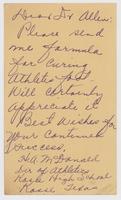 Dear Dr Allen:
Please send
me formula
for curing
Athletes foot
Will certainly
appreciate it
Best Wishes for
your continued
success,
H.A. McDonald
Dir of Athletics
Kosse High School
Kosse Texas